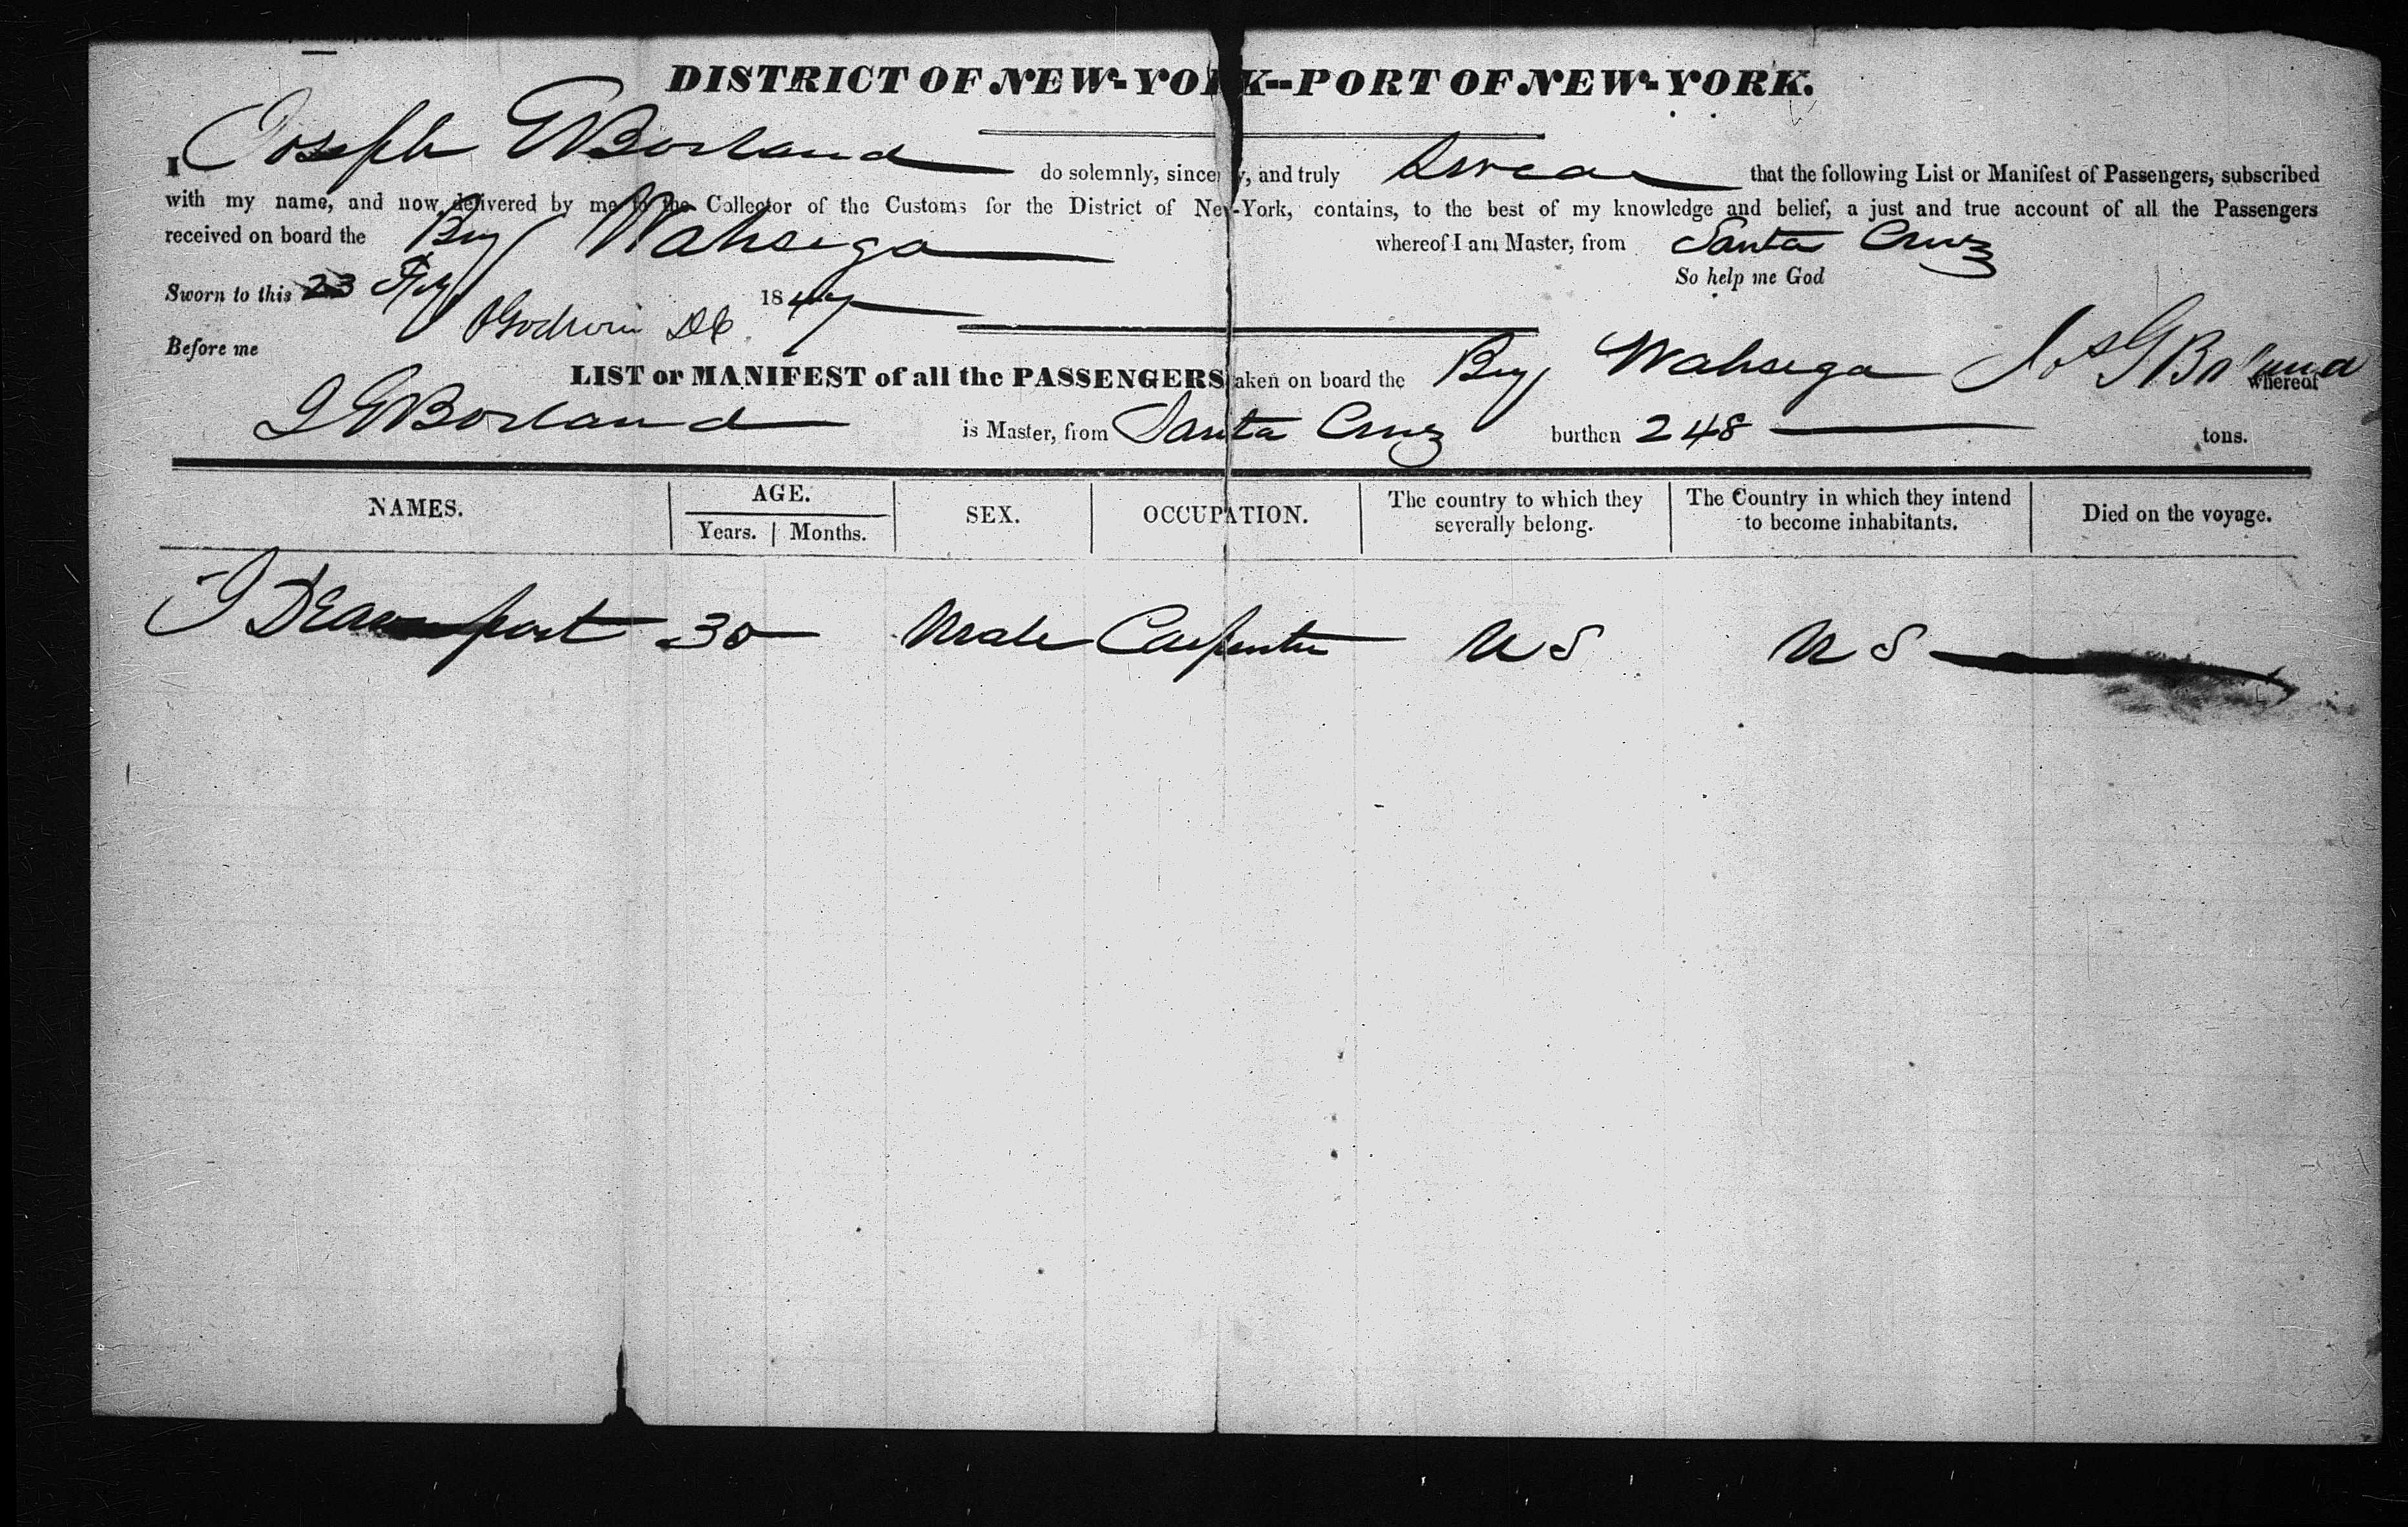 DISTRICT OF NEW-YORK--PORT OF NEW-YORK.
I Joseph G Borland do solemnly, sincerely, and truly Swear that the following List or Manifest of Passengers, subscribed
with my name, and now delivered by me to the Collector of the Customs for the District of New-York, contains, to the best of my knowledge and belief, a just and true account of all the Passengers
received on board the Brig Wahsega whereof I am Master, from Santa Cruz
So help me God
Sworn to this 23 Feby 1847
Before me Godwin
LIST or MANIFEST of all the PASSENGERS taken on board the Brig Wahsega Jos G Borland whereof
J G Borland is Master, from Santa Cruz burthen 248 tons.
NAMES. AGE. SEX. OCCUPATION. The country to which they severally belong. The Country in which they intend to become inhabitants. Died on the voyage.
Years. Months.
30 Male Carpenter U S U S